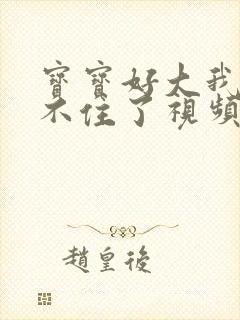 寶寶好大我
不住了視頻
趙皇後